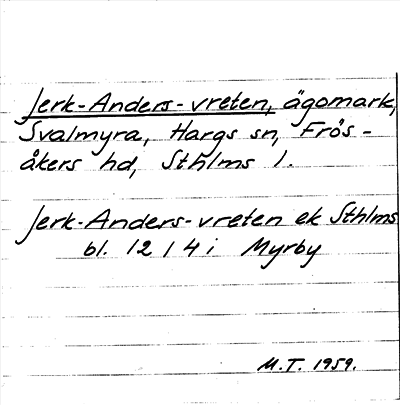 Jerk-Anders-vreten, ägomark,
Svalmyra, Hargs sn, Frös-
åkers hd, Sthlms l.
Jerk-Anders-vreten ek Sthlms
bl. 12 / 4 i Myrby
M.T. 1959.